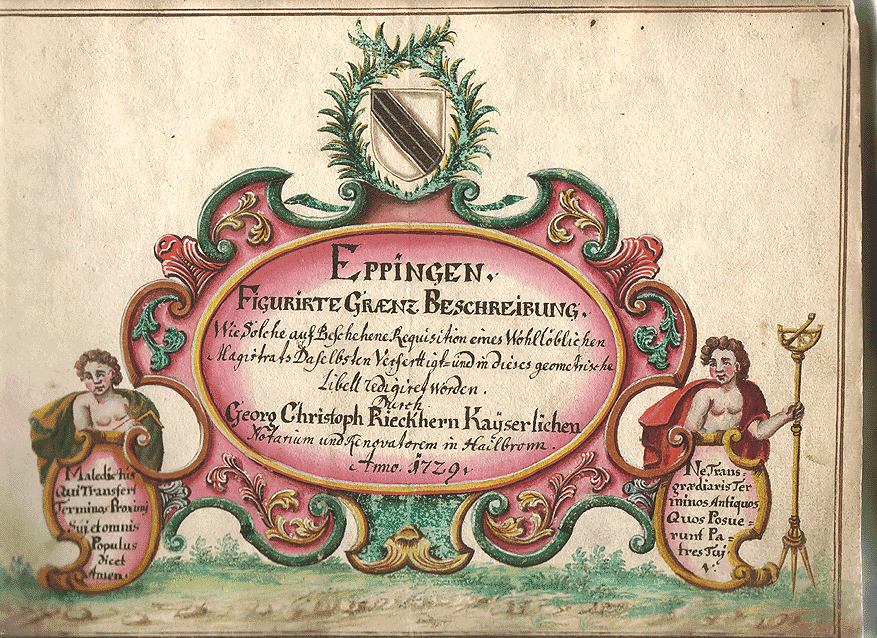 EPPINGEN.
FIGURIRTE GRÆNZ BESCHREIBUNG.
Wie Solche auf Beschehene Requisition eines Wohllöblichen
Magistrats Daselbsten Verferttigt= und in dieses geometrische
Libell redigiret worden.
Durch
Georg Christoph Rieckhern Kaÿserlichen
Notarium und Renovatorem in Haÿlbronn.
Anno. 1729.
Maledictus
Qui Transfert
Terminos Proximj
Suj et omnis
Populus
Dicet
Amen.
Ne Trans=
grædiaris Ter
minos Antiquos
Quos Posue=
runt Pa=
tres Tuj